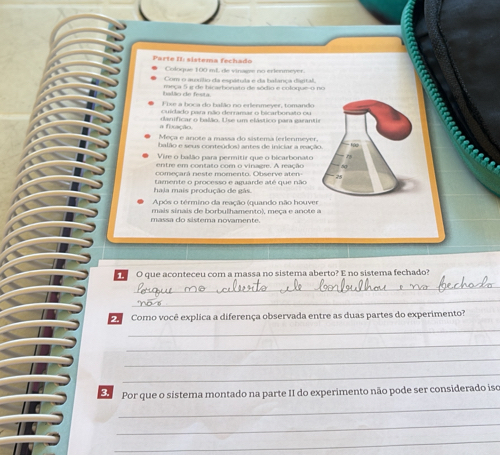 Parte II: sistema fechado
Coloque 100 mL de vinagre no erlenmeyer.
Com o auxílio da espátula e da balança digital,
meça 5 g de bicarbonato de sódio e coloque-o no
balão de festa.
Fixe a boca do balão no erlenmeyer, tomando
cuidado para não derramar o bicarbonato ou
danificar o balão. Use um elástico para garantir
a fixação.
Meça e anote a massa do sistema (erlenmeyer,
balão e seus conteúdos) antes de iniciar a reação.
Vire o balão para permitir que o bicarbonato
entre em contato com o vinagre. A reação
começará neste momento. Observe aten-
tamente o processo e aguarde até que não
haja mais produção de gás.
Após o término da reação (quando não houver
mais sinais de borbulhamento), meça e anote a
massa do sistema novamente.
100
75
50
25
1. O que aconteceu com a massa no sistema aberto? E no sistema fechado?
Porque no aberto ele borbulhou e no fechado
não.
2. Como você explica a diferença observada entre as duas partes do experimento?
3. Por que o sistema montado na parte II do experimento não pode ser considerado iso